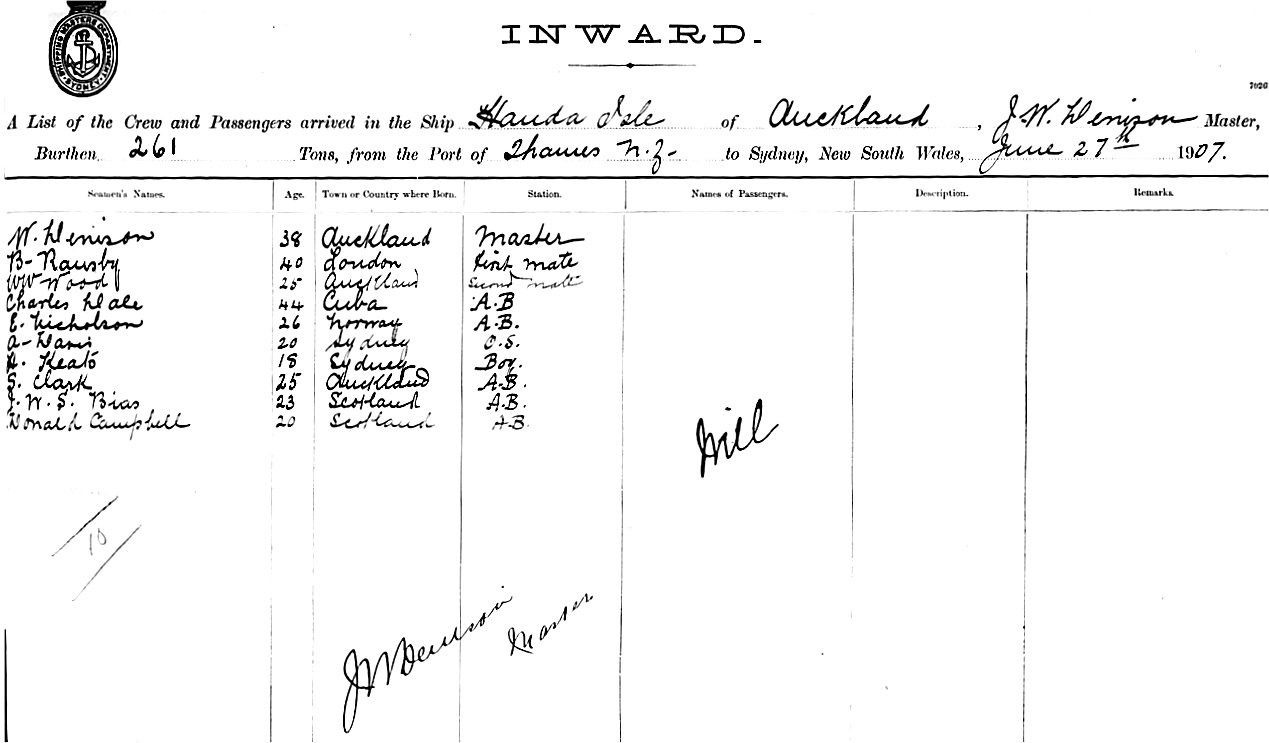 SHIPPING MASTERS DEPARTMENT SYDNEY
INWARD.
7026
A List of the Crew and Passengers arrived in the Ship Handa Isle of Auckland, J. W. Denison Master,
Burthen 261 Tons, from the Port of Thames N.Z. to Sydney, New South Wales, June 27th 1907.
Seamen's Names. Age. Town or Country where Born. Station. Names of Passengers. Description. Remarks.
W. Denison 38 Auckland Master
B. Ransby 40 London First mate
WW Wood 25 Auckland Second mate
Charles Dale 44 Cuba A.B
E. Nicholson 26 Norway A.B.
A. Davis 20 Sydney O.S.
H. Keats 18 Sydney Boy.
S. Clark 25 Auckland A.B.
J. W. S. Bias 23 Scotland A.B.
Donald Campbell 20 Scotland A.B.
Nill
10
JW Denison Master